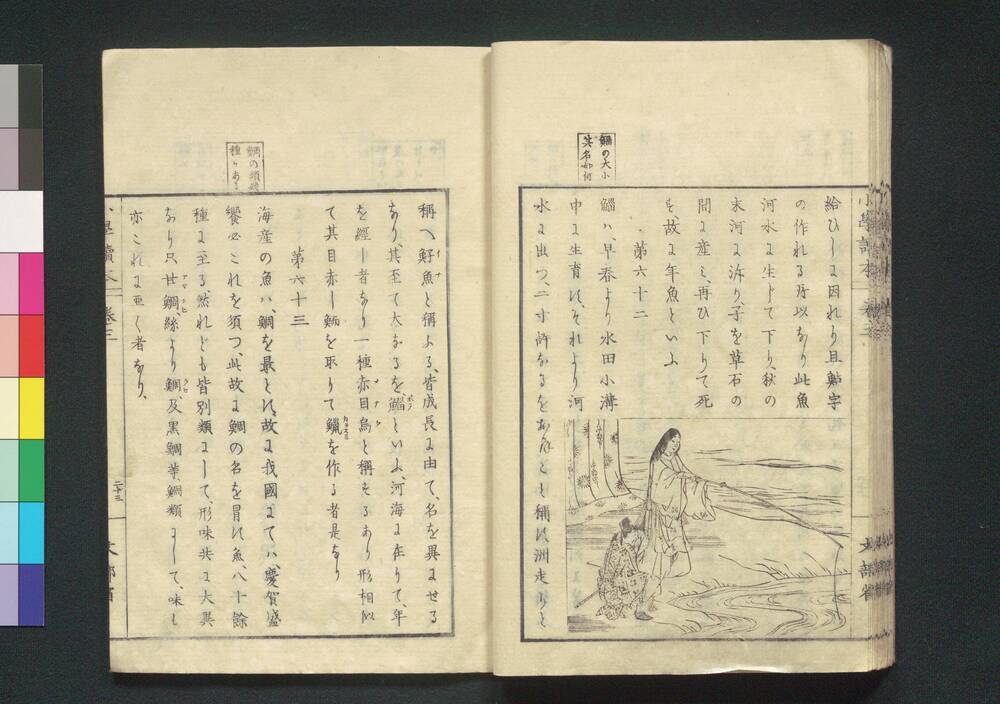 鯔の大小
其名如何
給ひしに因れり且鮎字
の作れる所以なり此魚
河水に生じて下り、秋の
末河に泝り、子を草石の
間に産ミ、再ひ下りて死
す、故に年魚といふ
第六十二
鯔ハ、早春より水田小溝
中に生育す、それより河
水に出つ、二寸許なるを
と稱す洲走りと
鯛の類幾
種りあるか
稱へ鮬魚と稱ふる、皆成長に由て、名を異にせる
なり、其至て大なるを鯔といふ、河海に在りて、年
を經し者なり一種赤目烏と稱するあり形相似
て其目赤し鯔を取りて鱲を作る者是なり
第六十三
海産の魚ハ、鯛を最とす、故に我國にてハ、慶賀盛
饗必これを須つ、此故に鯛の名を冒す魚、八十餘
種に至る、然れども皆別類にして、形味共に大異
なり只甘鯛、絲より鯛、及黒鯛等、鯛類にして、味も
亦これに亞く者なり、
小學讀本
卷三
二十三
文部省